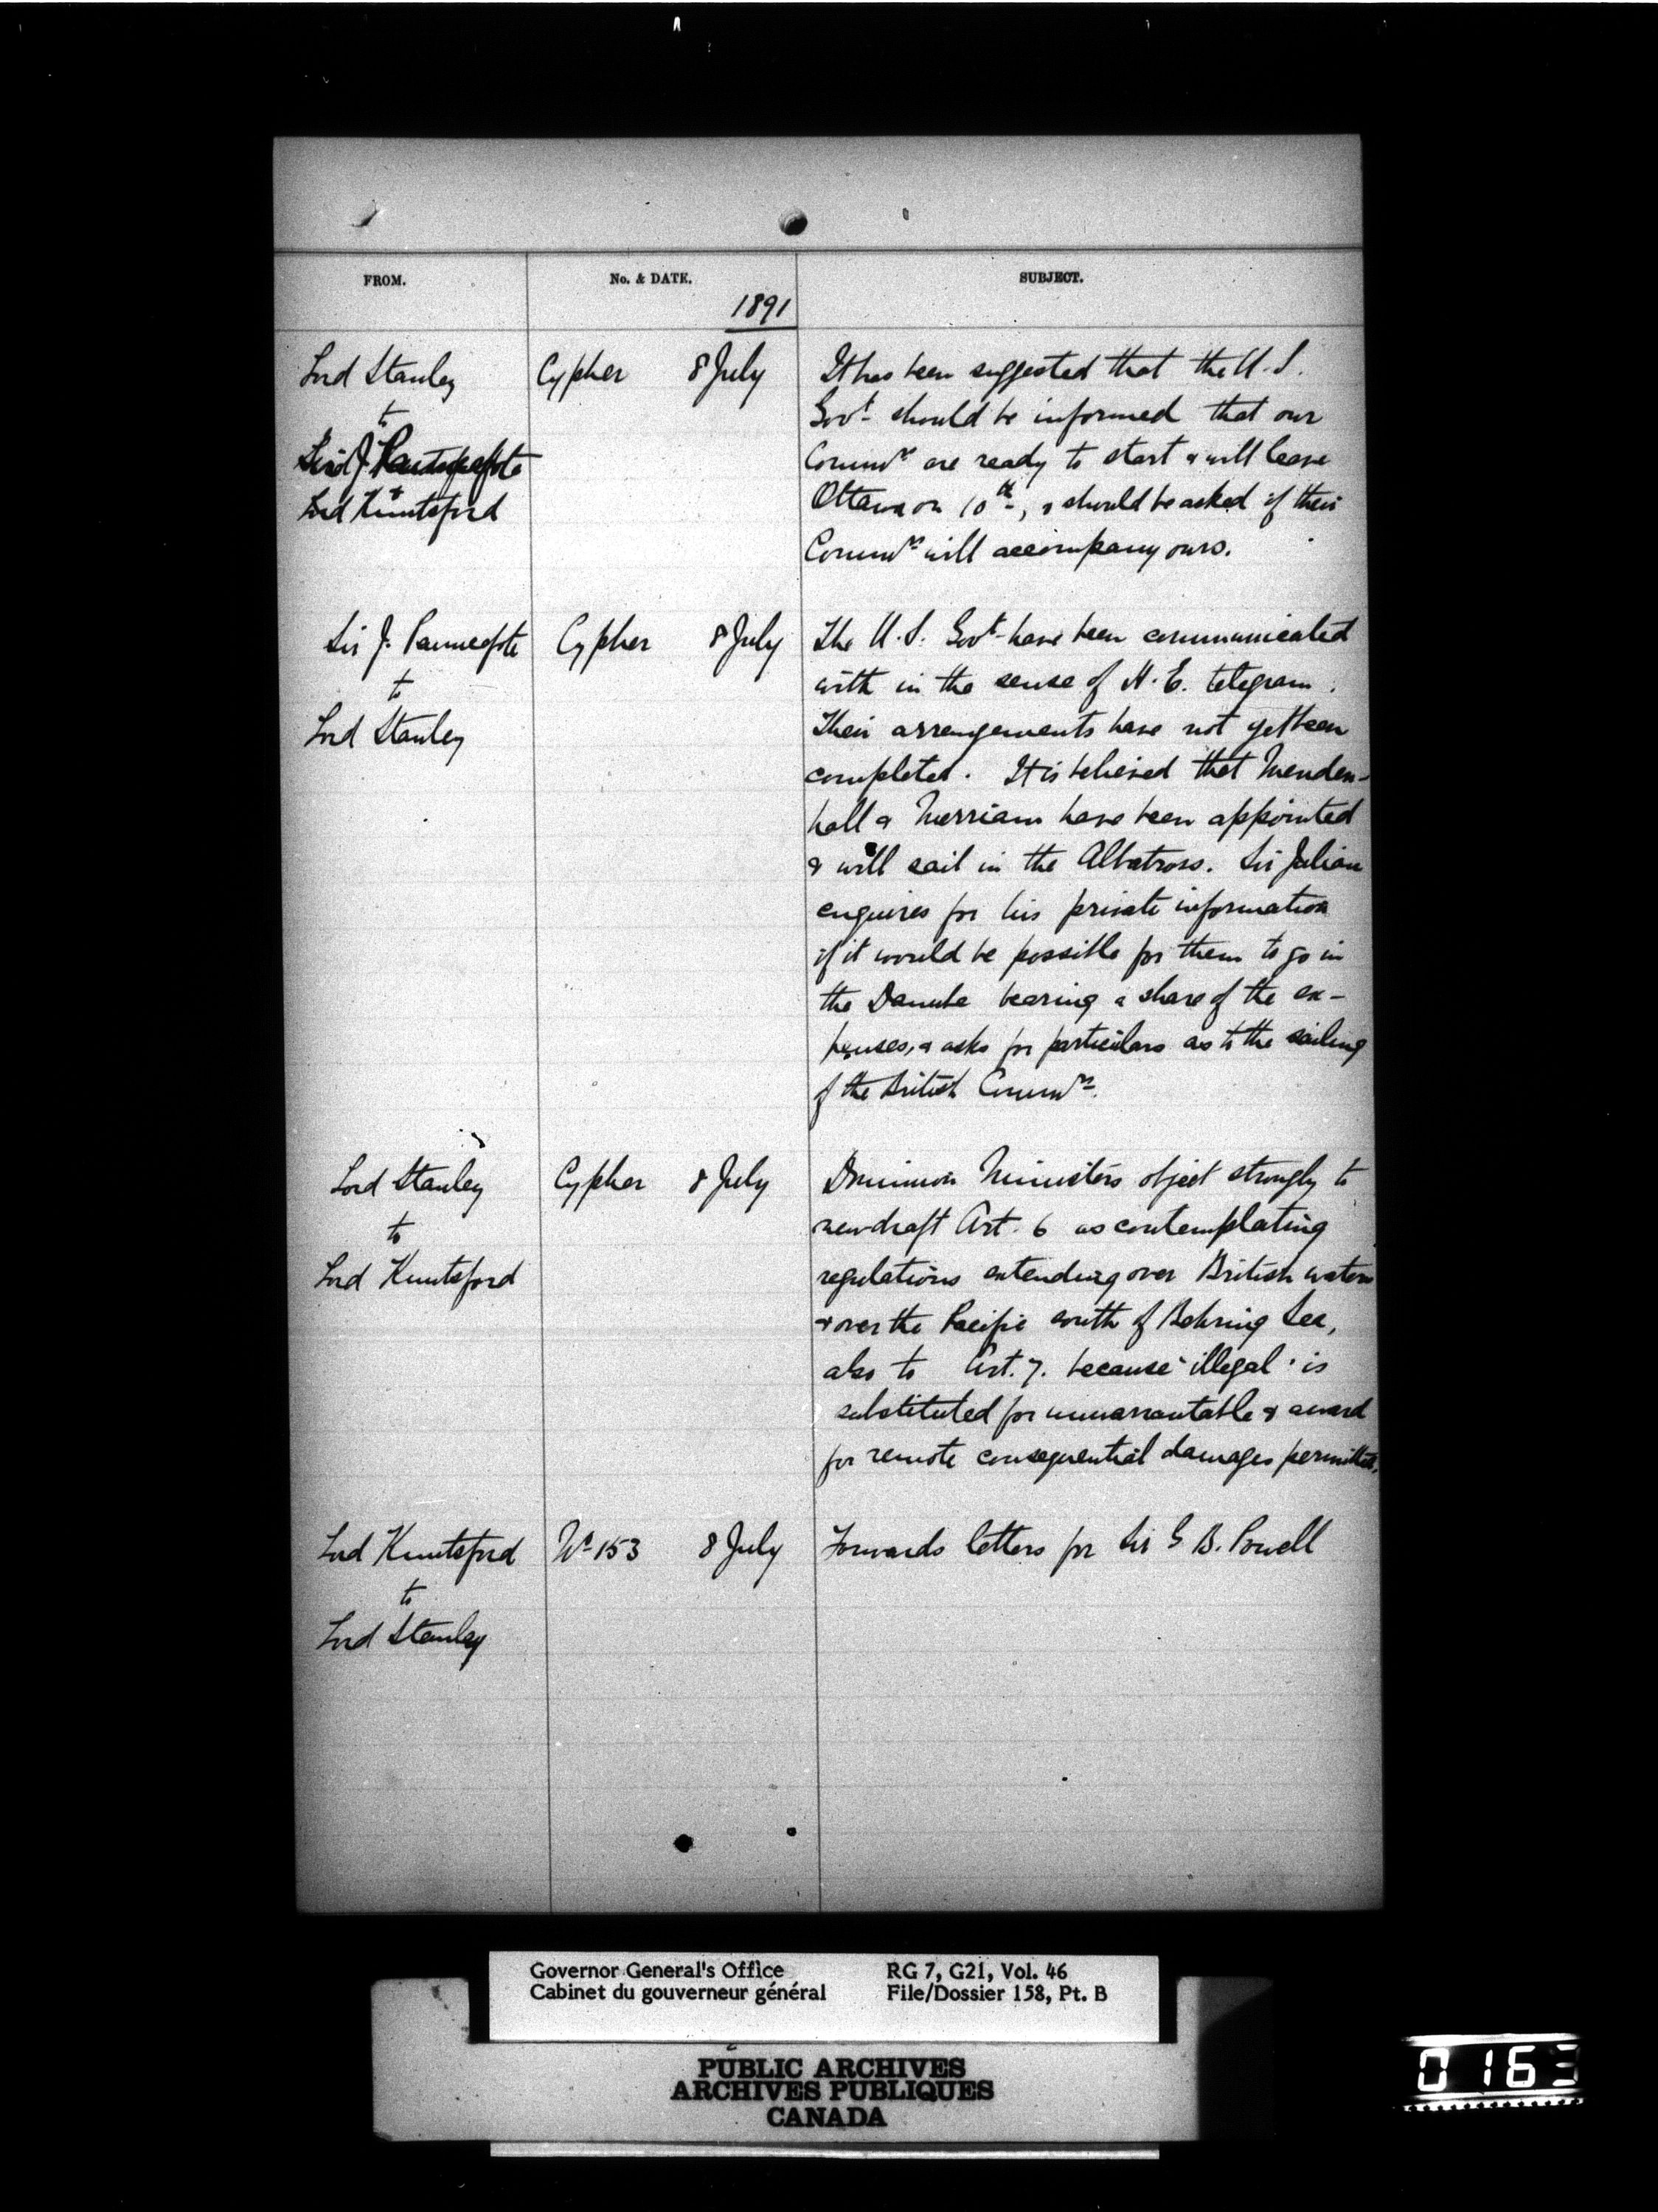 FROM. No. & DATE. SUBJECT.
1891
Lord Stanley Cypher 8 July It has been suggested that the U.S.
to Govt should be informed that our
Sir J. Pauncefote Commrs are ready to start & will leave
&
Lord Knutsford Ottawa on 10th, & should be asked if their
Commrs will accompany ours.
Sir J. Pauncefote Cypher 8 July The U.S. Govt have been communicated
to with in the sense of H.E. telegram.
Lord Stanley Their arrangements have not yet been
completed. It is believed that Menden-
hall & Merriam have been appointed
& will sail in the Albatross. Sir Julian
enquires for his private information
if it would be possible for them to go in
the Danube bearing a share of the ex-
penses, & asks for particulars as to the sailing
of the British Commrs.
Lord Stanley Cypher 8 July Dominion Ministers object strongly to
to new draft Art. 6 as contemplating
Lord Knutsford regulations extending over British waters
& over the Pacific south of Behring Sea,
also to Art. 7. because "illegal" is
substituted for unwarrantable & award
for remote consequential damages permitted.
Lord Knutsford No 153 8 July Forwards letters for Sir G. B. Powell
to
Lord Stanley
Governor General's Office RG 7, G21, Vol. 46
Cabinet du gouverneur général File/Dossier 158, Pt. B
PUBLIC ARCHIVES
ARCHIVES PUBLIQUES
CANADA
0163